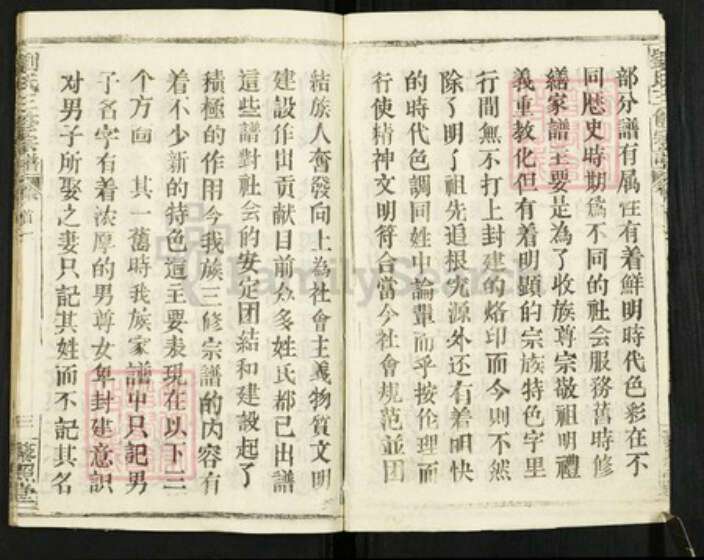 部分譜有属性有着鮮明時代色彩在不
同歴史時期為不同的社会服務舊時修
繕家譜主要是為了收族尊宗敬祖明禮
義重教化但有着明顯的宗族特色字里
行間無不打上封建的烙印而今則不然
除了明了祖先追根究源外还有着明快
的時代色調同姓中論輩而乎按伦理而
行使精神文明符合當今社會規范並团
結族人奮發向上為社會主義物質文明
建設作出貢献目前众多姓氏都已出譜
這些譜對社会的安定团結和建設起了
積極的作用今我族三修宗譜的内容有
着不少新的特色這主要表現在以下三
个方面 其一舊時我族家譜中只記男
子名字有着浓厚的男尊女卑封建意識
对男子所娶之妻只記其姓而不記其名
劉氏三修宗譜
卷首一
三
FamilySearch